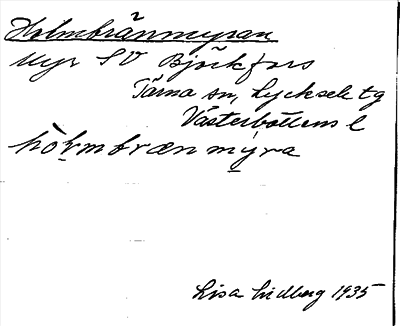 Holmbränmyran
Myr SV Björkfors
Tärna sn, Lycksele tg
Västerbottens l
hòḷmbræn mỵra
Lisa Lidberg 1935